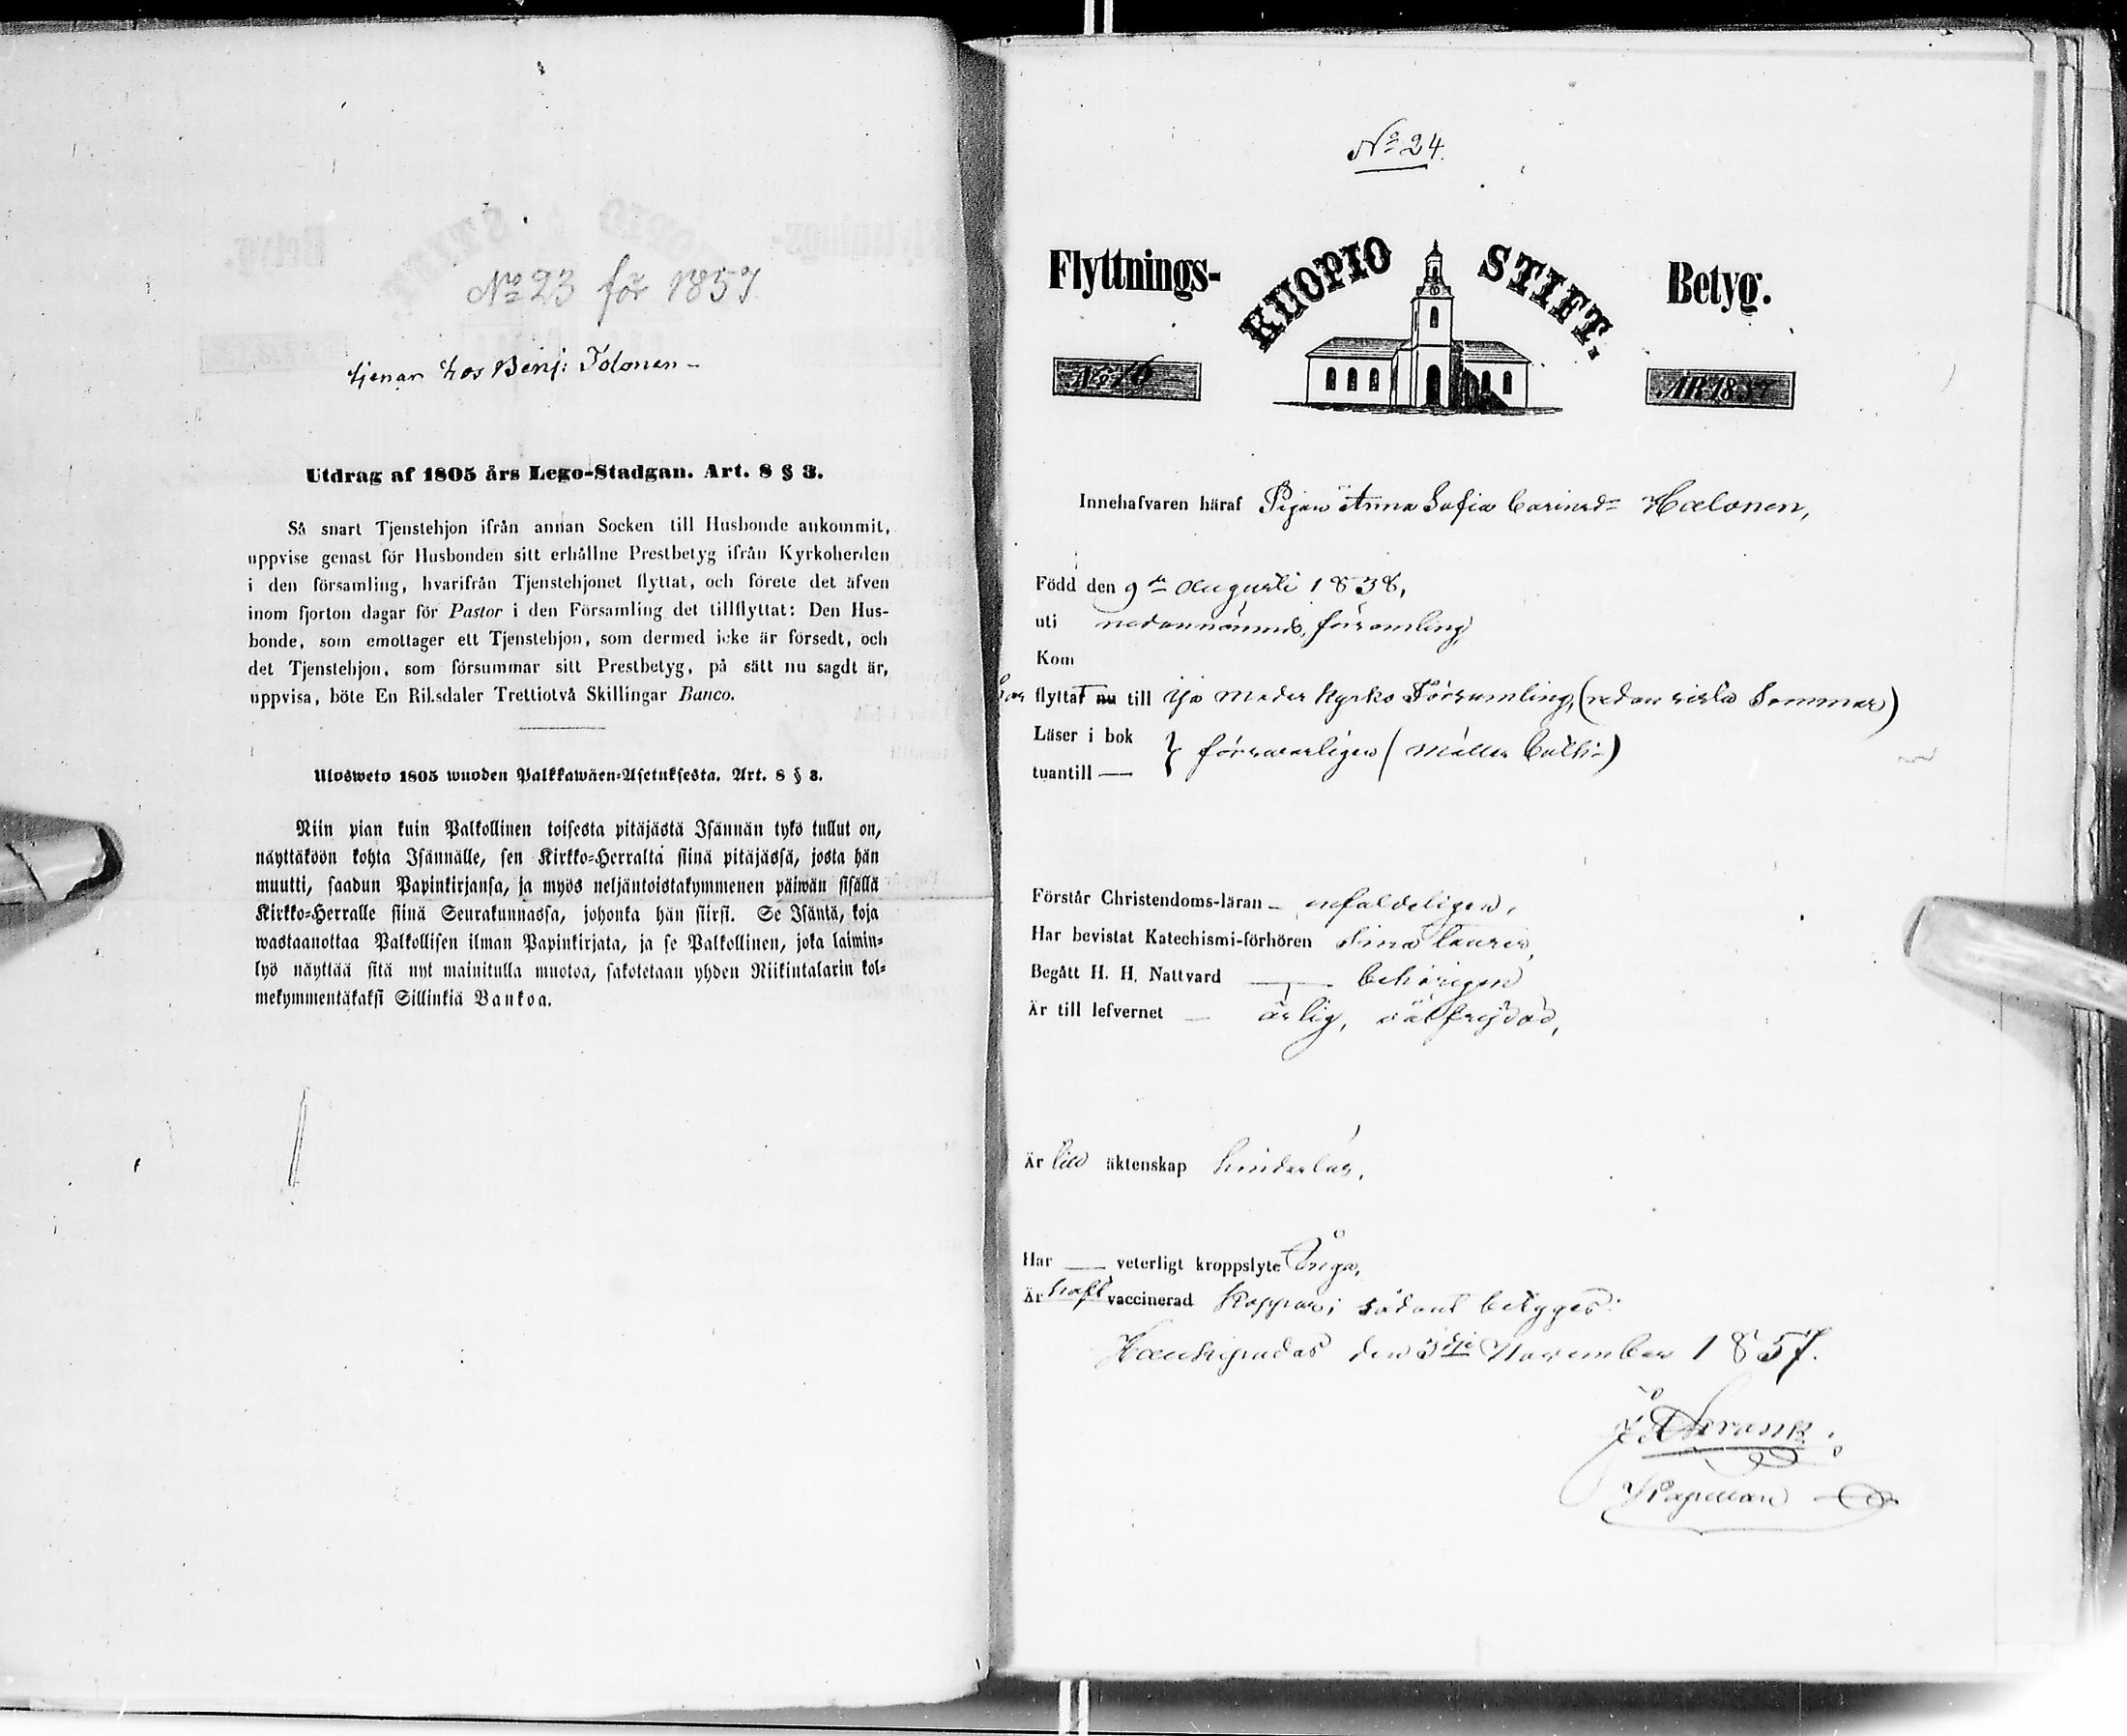 No 23 för 1857
tjenar hos Benj: Tolonen –
Utdrag af 1805 års Lego-Stadgan. Art. 8 § 3.
Så snart Tjenstehjon ifrån annan Socken till Husbonde ankommit,
uppvise genast för Husbonden sitt erhållne Prestbetyg ifrån Kyrkoherden
i den församling, hvarifrån Tjenstehjonet flyttat, och förete det äfven
inom fjorton dagar för Pastor i den Församling det tillflyttat: Den Hus-
bonde, som emottager ett Tjenstehjon, som dermed icke är försedt, och
det Tjenstehjon, som försummar sitt Prestbetyg, på sätt nu sagdt är,
uppvisa, böte En Riksdaler Trettiotvå Skillingar Banco.
Ulosweto 1805 wuoden Palkkawäen-Asetuksesta. Art. 8 § 3.
Niin pian kuin Palkollinen toisesta pitäjästä Isännän tykö tullut on,
näyttäköön kohta Isännälle, sen Kirkko-Herralta siinä pitäjässä, josta hän
muutti, saadun Papinkirjansa, ja myös neljäntoistakymmenen päiwän sisällä
Kirkko-Herralle siinä Seurakunnassa, johonka hän siirsi. Se Isäntä, koja
wastaanottaa Palkollisen ilman Papinkirjata, ja se Palkollinen, joka laimin-
lyö näyttää sitä nyt mainitulla muotoa, sakotetaan yhden Riikintalarin kol-
mekymmentäkaksi Sillinkiä Bankoa.
No 24.
Flyttnings- KUOPIO STIFT. Betyg.
No 16 ÅR 1857
Innehafvaren häraf Pigan Anna Sofia Carinsdr Halonen,
Född den 9de Augusti 1838,
uti nedannämnde församling,
Kom
har flyttat nu till Ijo Moder kyrko Församling, (redan sista Sommar)
Läser i bok
tuantill — } försvarligen (
Förstår Christendoms-läran – enfaldeligen,
Har bevistat Katechismi-förhören sina
Begått H. H. Nattvard — behörigen
Är till lefvernet – ärlig, välfrejdad,
Är till äktenskap hinderlös,
Har — veterligt kroppslyte Inga,
Är haft vaccinerad Koppor; sådant betygges:
Haukipudas den 3dje November 1857.
Kapellan